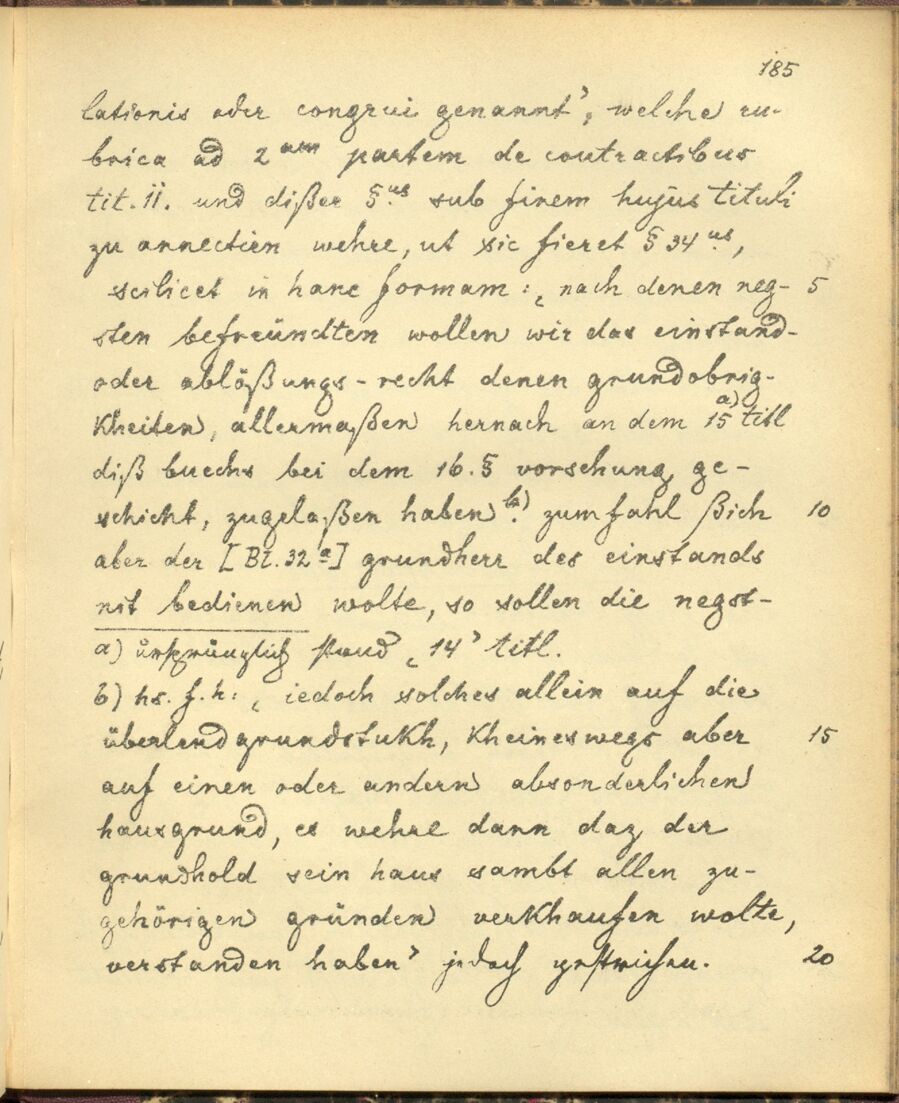 185
lationis oder congrui genannt’, welche ru-
brica ad 2am partem de contractibus
tit. II. und dißer §us sub finem hujus tituli
zu annectirn wehre, ut sic fieret § 34us,
scilicet in hanc formam: ‚nach denen neg- 5
sten befreündten wollen wir das einstand-
oder ablößungs-recht denen grundobrig-
kheiten, allermaßen hernach an dem 15a) titl
diß buechs bei dem 16. § vorsehung ge-
schicht, zugelaßen haben b). zumfahl ßich 10
aber der [Bl. 32a] grundherr des einstands
nit bedienen wolte, so sollen die negst-
a) ursprünglich stand ‚14’ titl.
b) hs. f. h: ‚iedoch solches allein auf die
überlendgrundstukh, kheineswegs aber 15
auf einen oder andern absonderlichen
hausgrund, es wehre dann daz der
grundhold sein haus sambt allen zu-
gehörigen gründen verkhaufen wolte,
verstanden haben’ jedoch gestrichen. 20